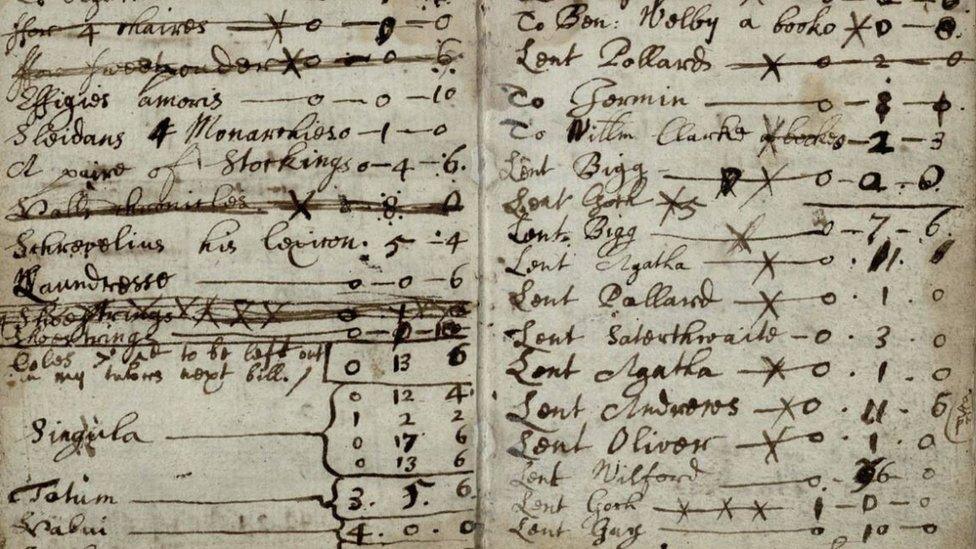 for 4 chaires X 0 0
for sweet ponder X 0 - 0 6
Effigies amoris — 0 — 0 — 10
Sleidans 4 Monarchies 0 — 1 — 0
A paire of Stockings 0 — 4 — 6
Balls chronicles X 8 0
Schrevelius his lexicon. 5 — 4
Laundresse — 0 — 0 — 6
Shoestrings XXXX
Shoestrings
Coles to be left out 0 13 6
in my tutors next bill.
0 12 4
1 2 2
Singula — 0 17 6
0 13 6
Totum — 3. 5. 6
Habui — 4. 0. 0
To Ben: Welby a booke X 0 — 8.
Lent Pollard — X — 0 — 2 — 0
To Germin — 0 — 8
To Willm Clarke 2 — 3
Lent Bigg — X — 0
Lent Cock
Lent Bigg — X — 0 — 7 — 6.
Lent Agatha — X — 0 . 11 .
Lent Pollard — X — 0 . 1 . 0
Lent Saterthwaite — 0 . 3 . 0
Lent Agatha — X — 0 . 1 . 0
Lent Andrews — X 0 . 11 . 6
Lent Oliver — X — 0 . 1 . 0
Lent Wilford — 0 . 6 0
Lent Cock — X X X — 1 — 0 — 0
Lent Gay — 0 10 — 0